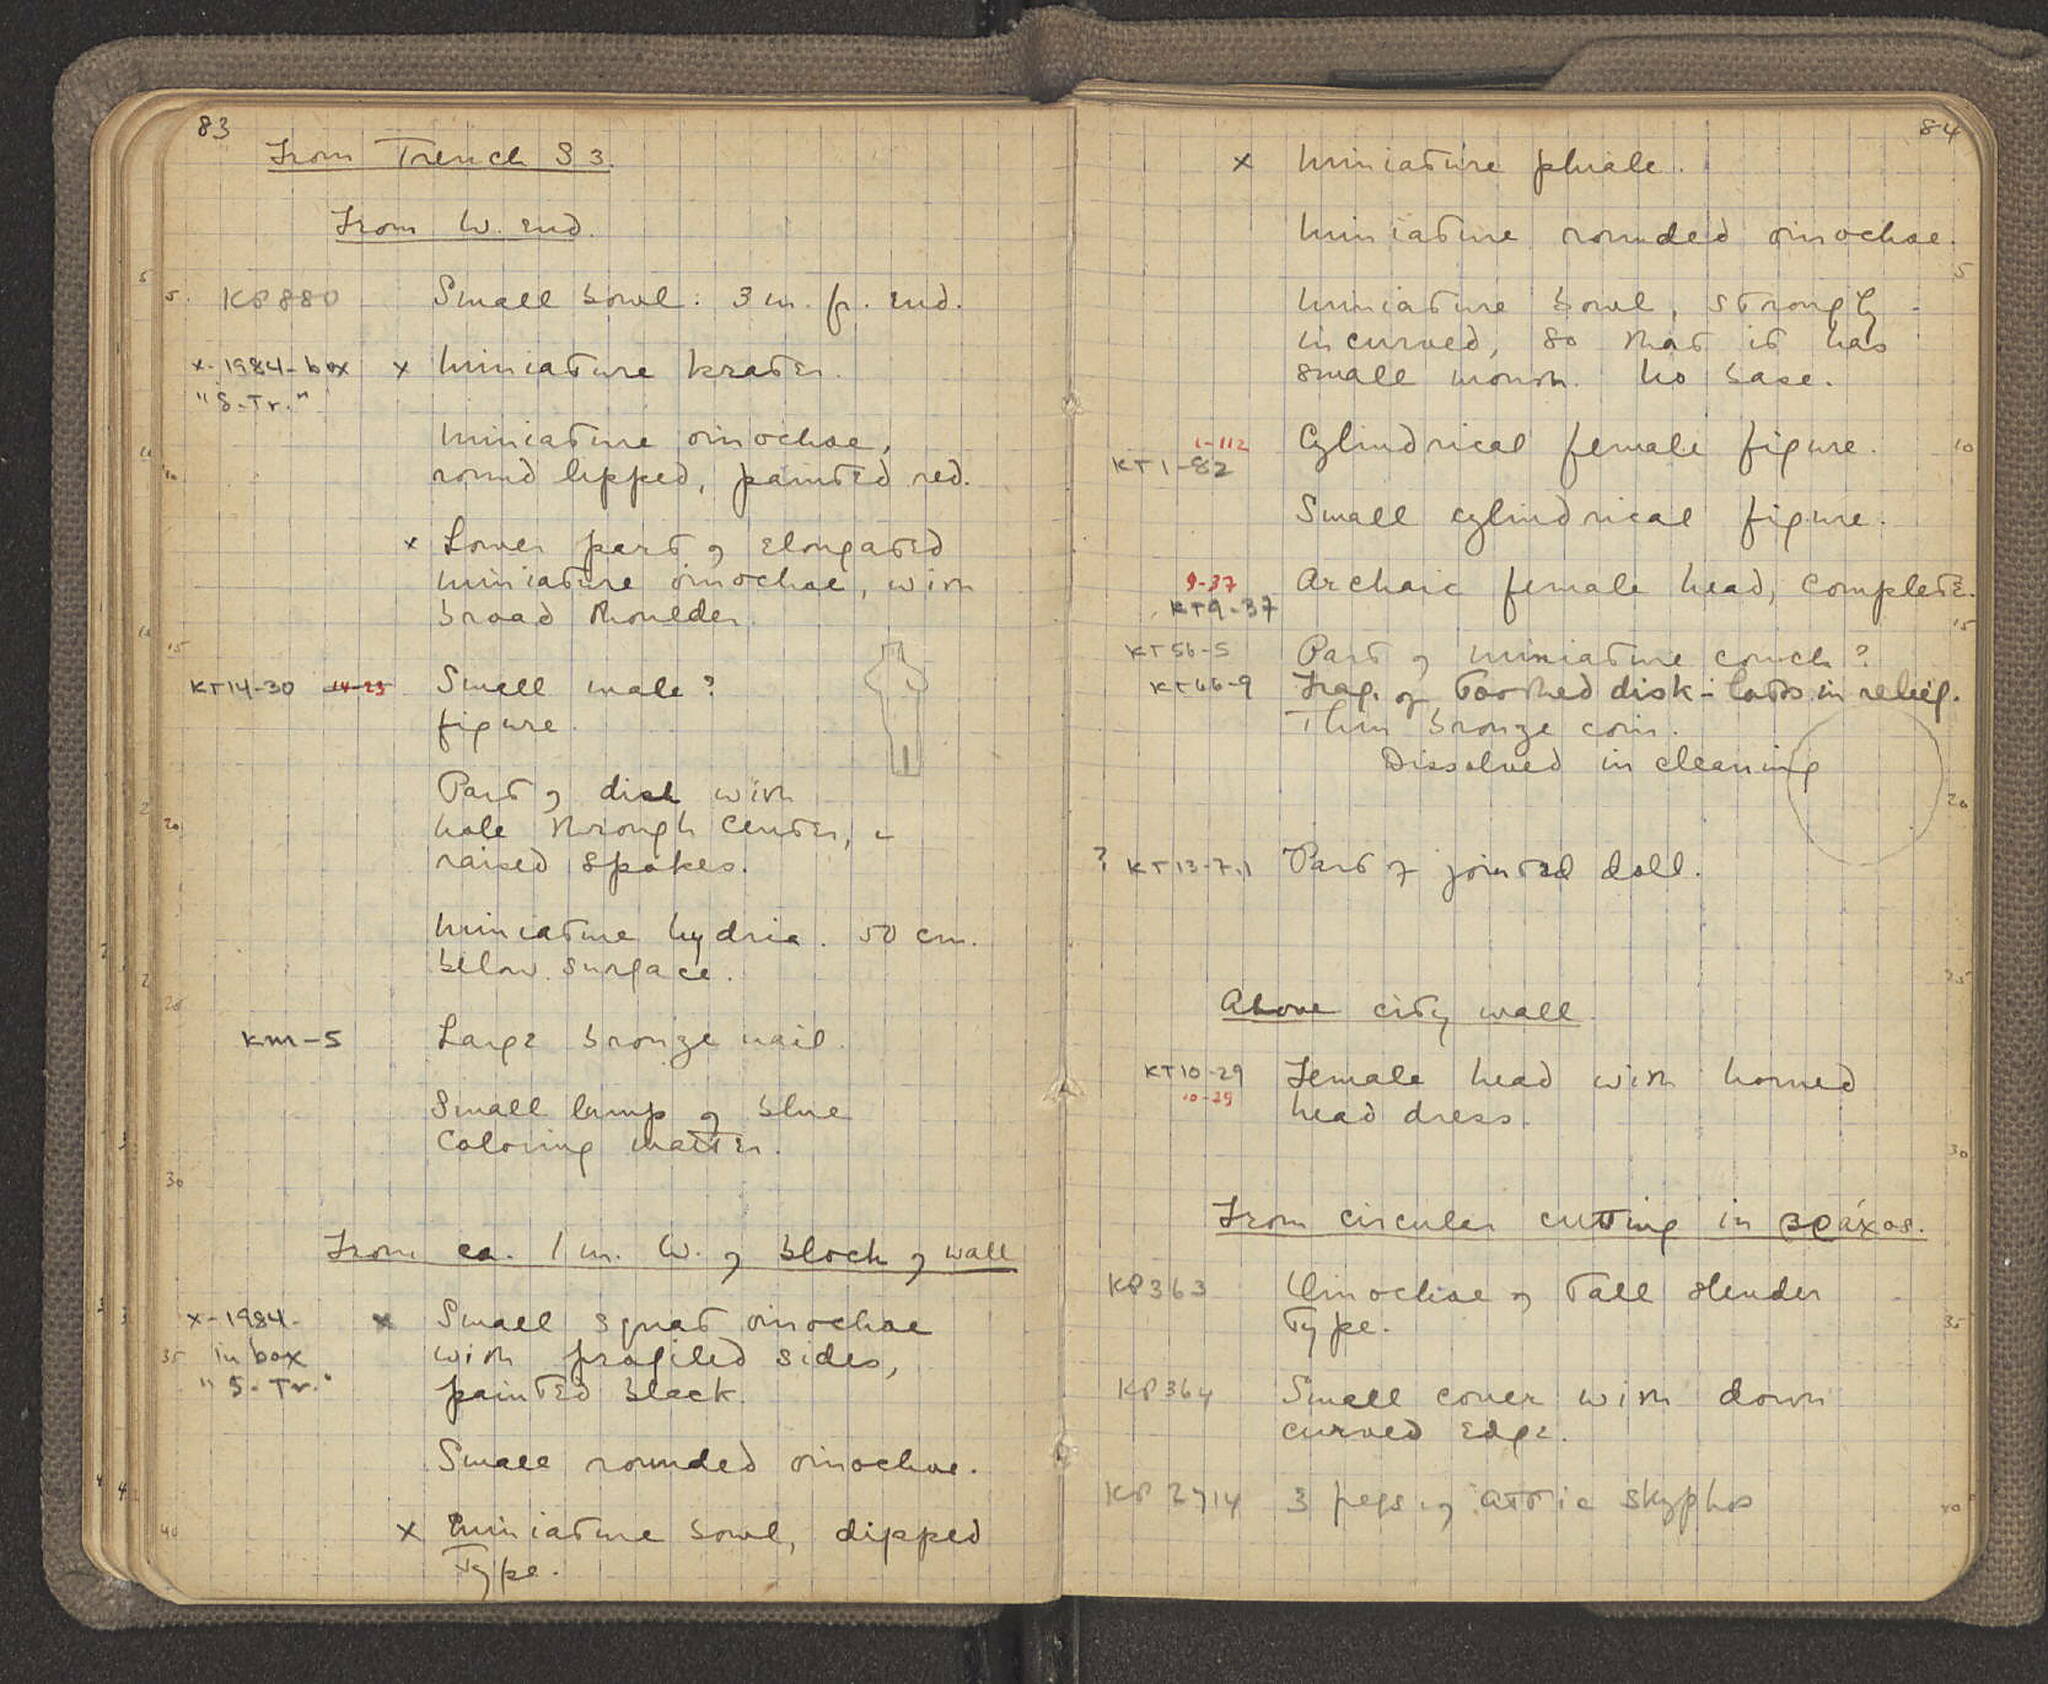 83
From Trench S 3.
From W. end.
5. KP880 Small bowl: 3 m. fr. end.
x-1984-box x Miniature krater.
"S-Tr."
Miniature oinochoe,
10 round lipped, painted red.
x Lower part of elongated
miniature oinochoe, with
broad shoulder.
15
KT14-30 14-23 Small male?
figure.
Part of disk with
20 hole through center, c
raised spokes.
Miniature hydria. 50 cm.
below surface.
25
KM-5 Large bronze nail.
Small lump of blue
coloring matter.
30
From ca. 1 m. W. of block of wall
x-1984- x Small squat oinochoe
35 in box with profiled sides,
"S-Tr." painted black.
Small rounded oinochoe.
40 x Miniature bowl, dipped
type.
84
x Miniature phiale.
Miniature rounded oinochoe.
5
Miniature bowl, strongly
incurved, so that it has
small mouth. No base.
1-112 Cylindrical female figure. 10
KT1-82
Small cylindrical figure.
9-37 Archaic female head, complete.
KT9-37
15
KT56-5 Part of miniature couch?
KT66-9 Frag. of toothed disk - in relief.
Thin bronze coin.
Dissolved in cleaning
20
? KT13-7.1 Part of jointed doll.
25
Above city wall
KT10-29 Female head with horned
10-29 head dress.
30
From circular cutting in βράχος.
KP363 Oinochoe of tall slender
type. 35
KP364 Small cover with down
curved edge.
KP2714 3 frgs. of Attic skyphos 40